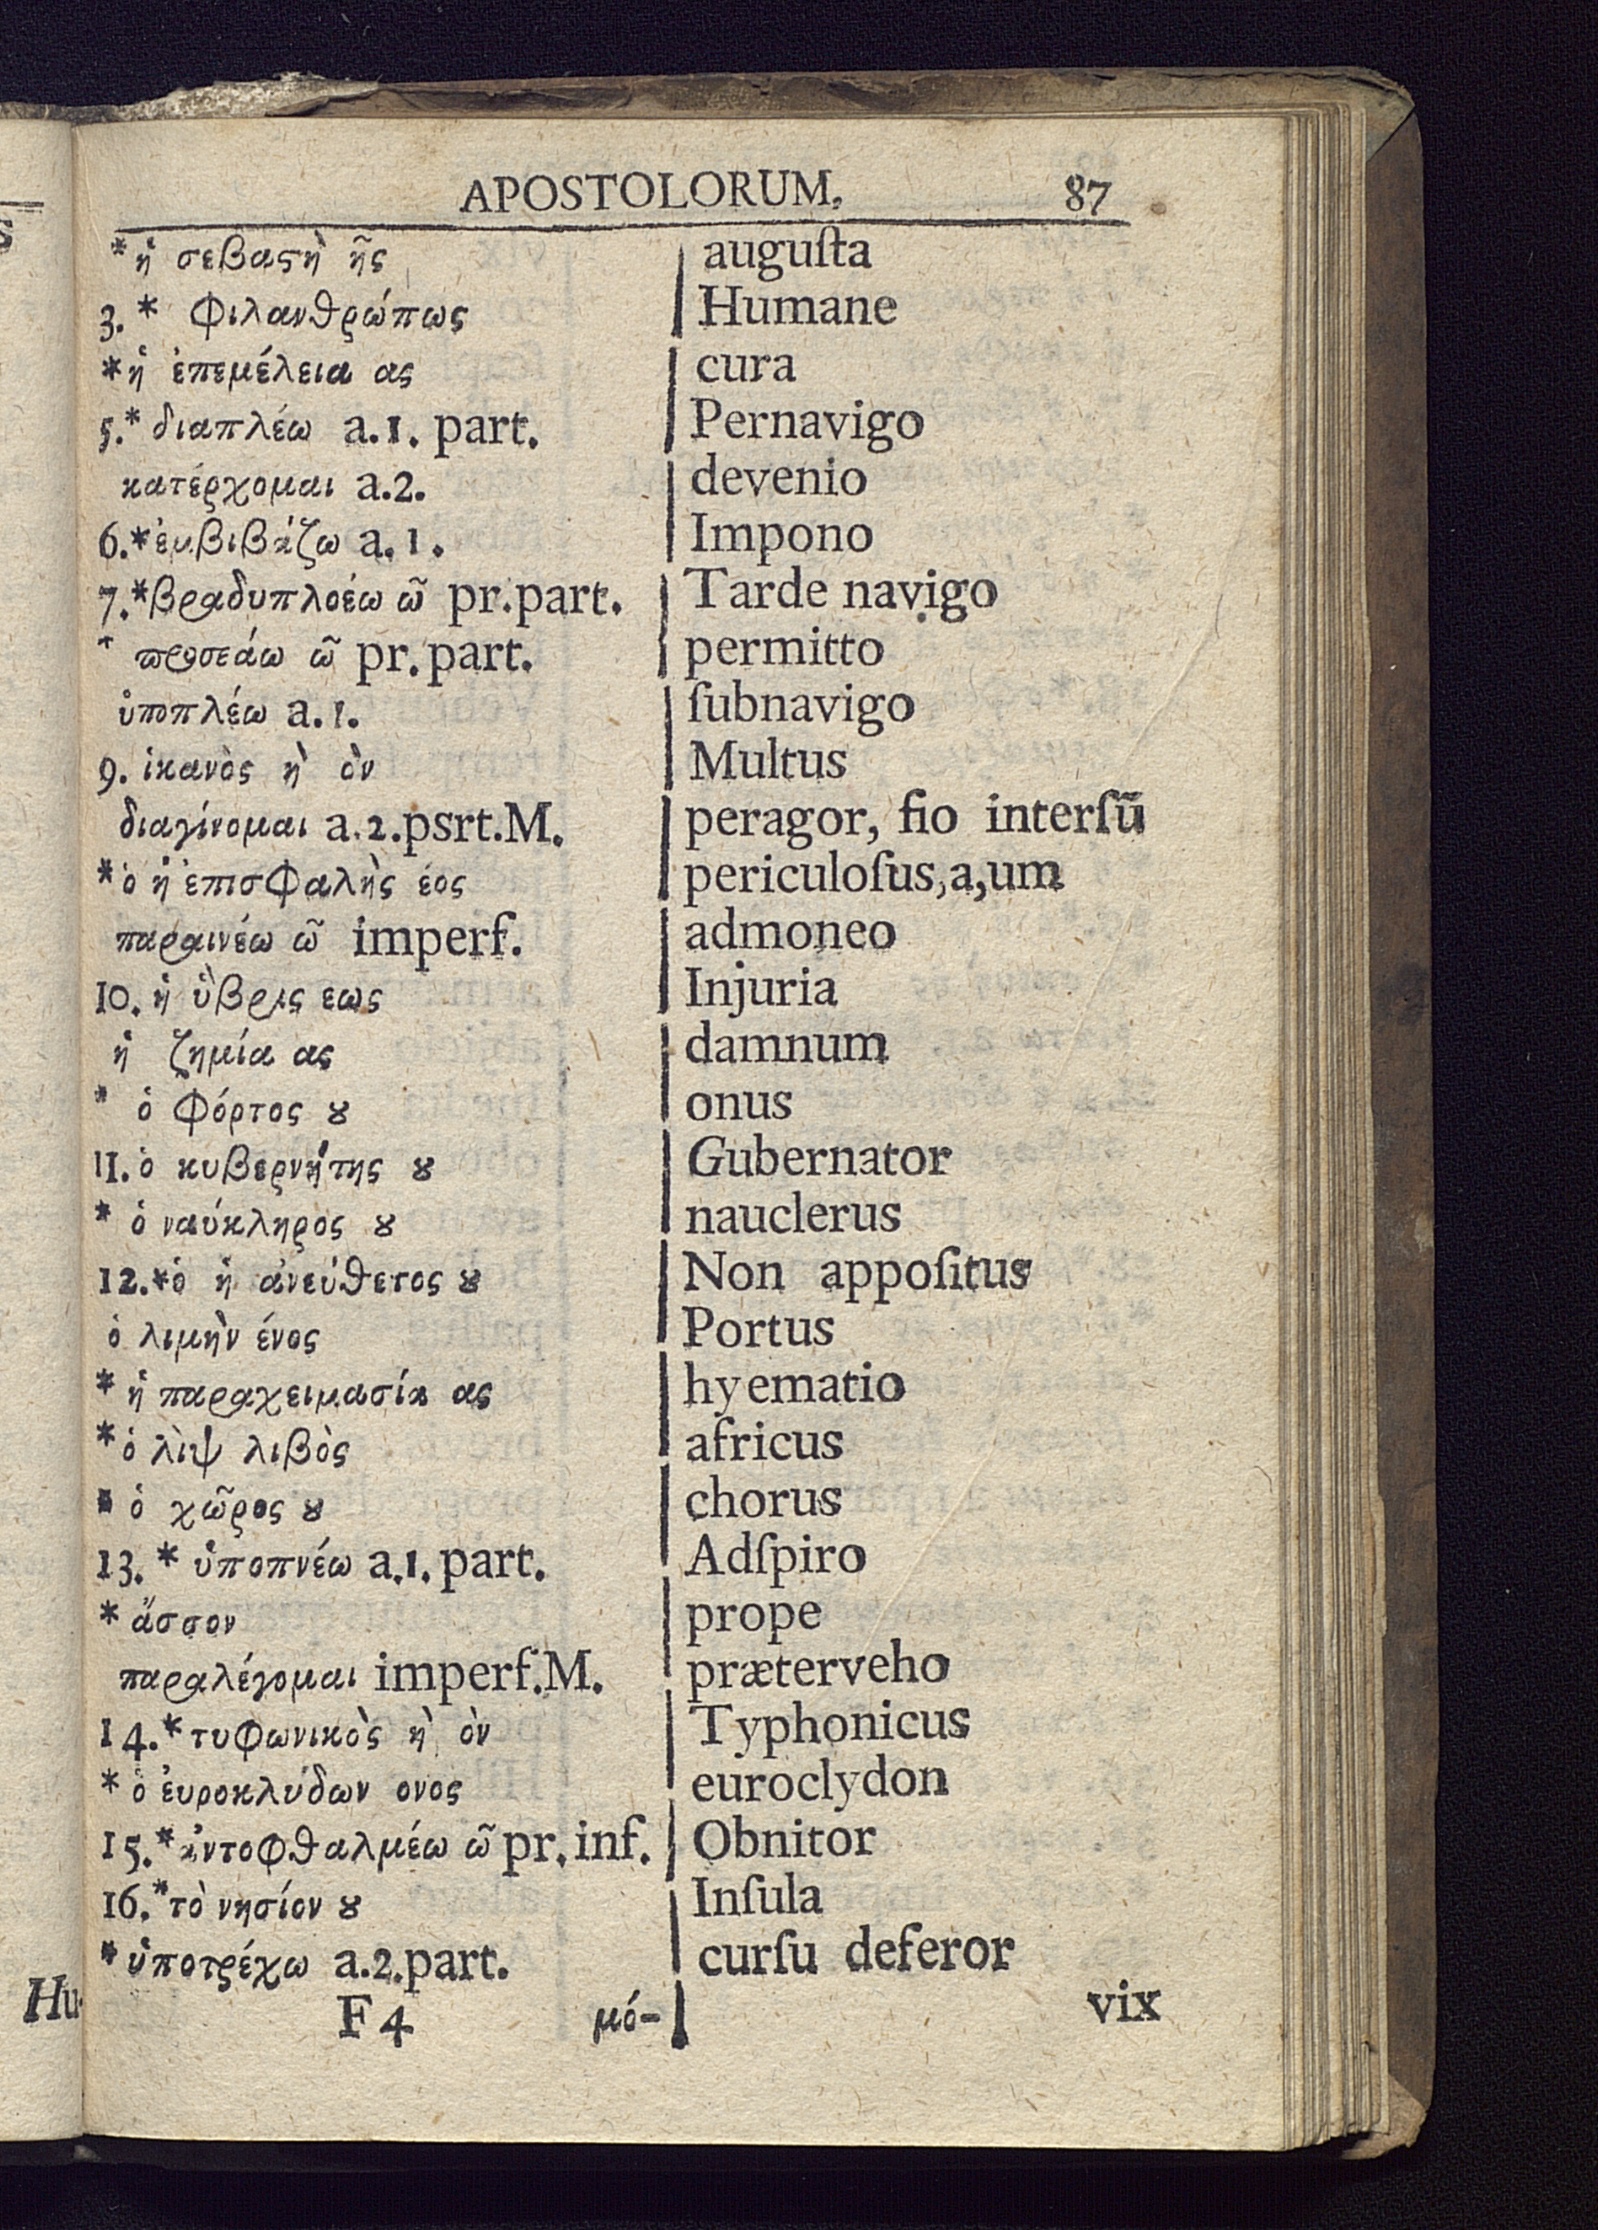 APOSTOLORUM. 87
* ἡ σεβαςὴ ῆς auguſta
3. * φιλανθρώπως Humane
* ἡ ἐπεμέλεια ας cura
5. * διαπλέω a.1. part. Pernavigo
κατέρχομαι a.2. devenio
6. * ἐμβιβάζω a.1. Impono
7. * βραδυπλοέω ῶ pr.part. Tarde navigo
* προσεάω ῶ pr.part. permitto
ὑποπλέω a.1. ſubnavigo
9. ἱκανὸς ὴ ὸν Multus
διαγίνομαι a.2.psrt.M. peragor, fio interſũ
* ὁ ἡ ἐπισφαλὴς έος periculoſus,a,um
παραινέω ῶ imperf. admoneo
10. ἡ ὕβρις εως Injuria
ἡ ζημία ας damnum
* ὁ φόρτος ȣ onus
11. ὁ κυβερνήτης ȣ Gubernator
* ὁ ναύκληρος ȣ nauclerus
12. * ὁ ἡ ἀνεύθετος ȣ Non appoſitus
ὁ λιμὴν ένος Portus
* ἡ παραχειμασία ας hyematio
* ὁ λὶψ λιβὸς africus
* ὁ χῶρος ȣ chorus
13. * ὑποπνέω a.1. part. Adſpiro
* ἄσσον prope
παραλέγομαι imperf.M. præterveho
14. * τυφωνικὸς ὴ ὸν Typhonicus
* ὁ ἐυροκλύδων ονος euroclydon
15. * ἀντοφθαλμέω ῶ pr.inf. Obnitor
16. * τὸ νησίον ȣ Inſula
* ὑποτρέχω a.2.part. curſu deferor
Hu-
F 4 μό- vix